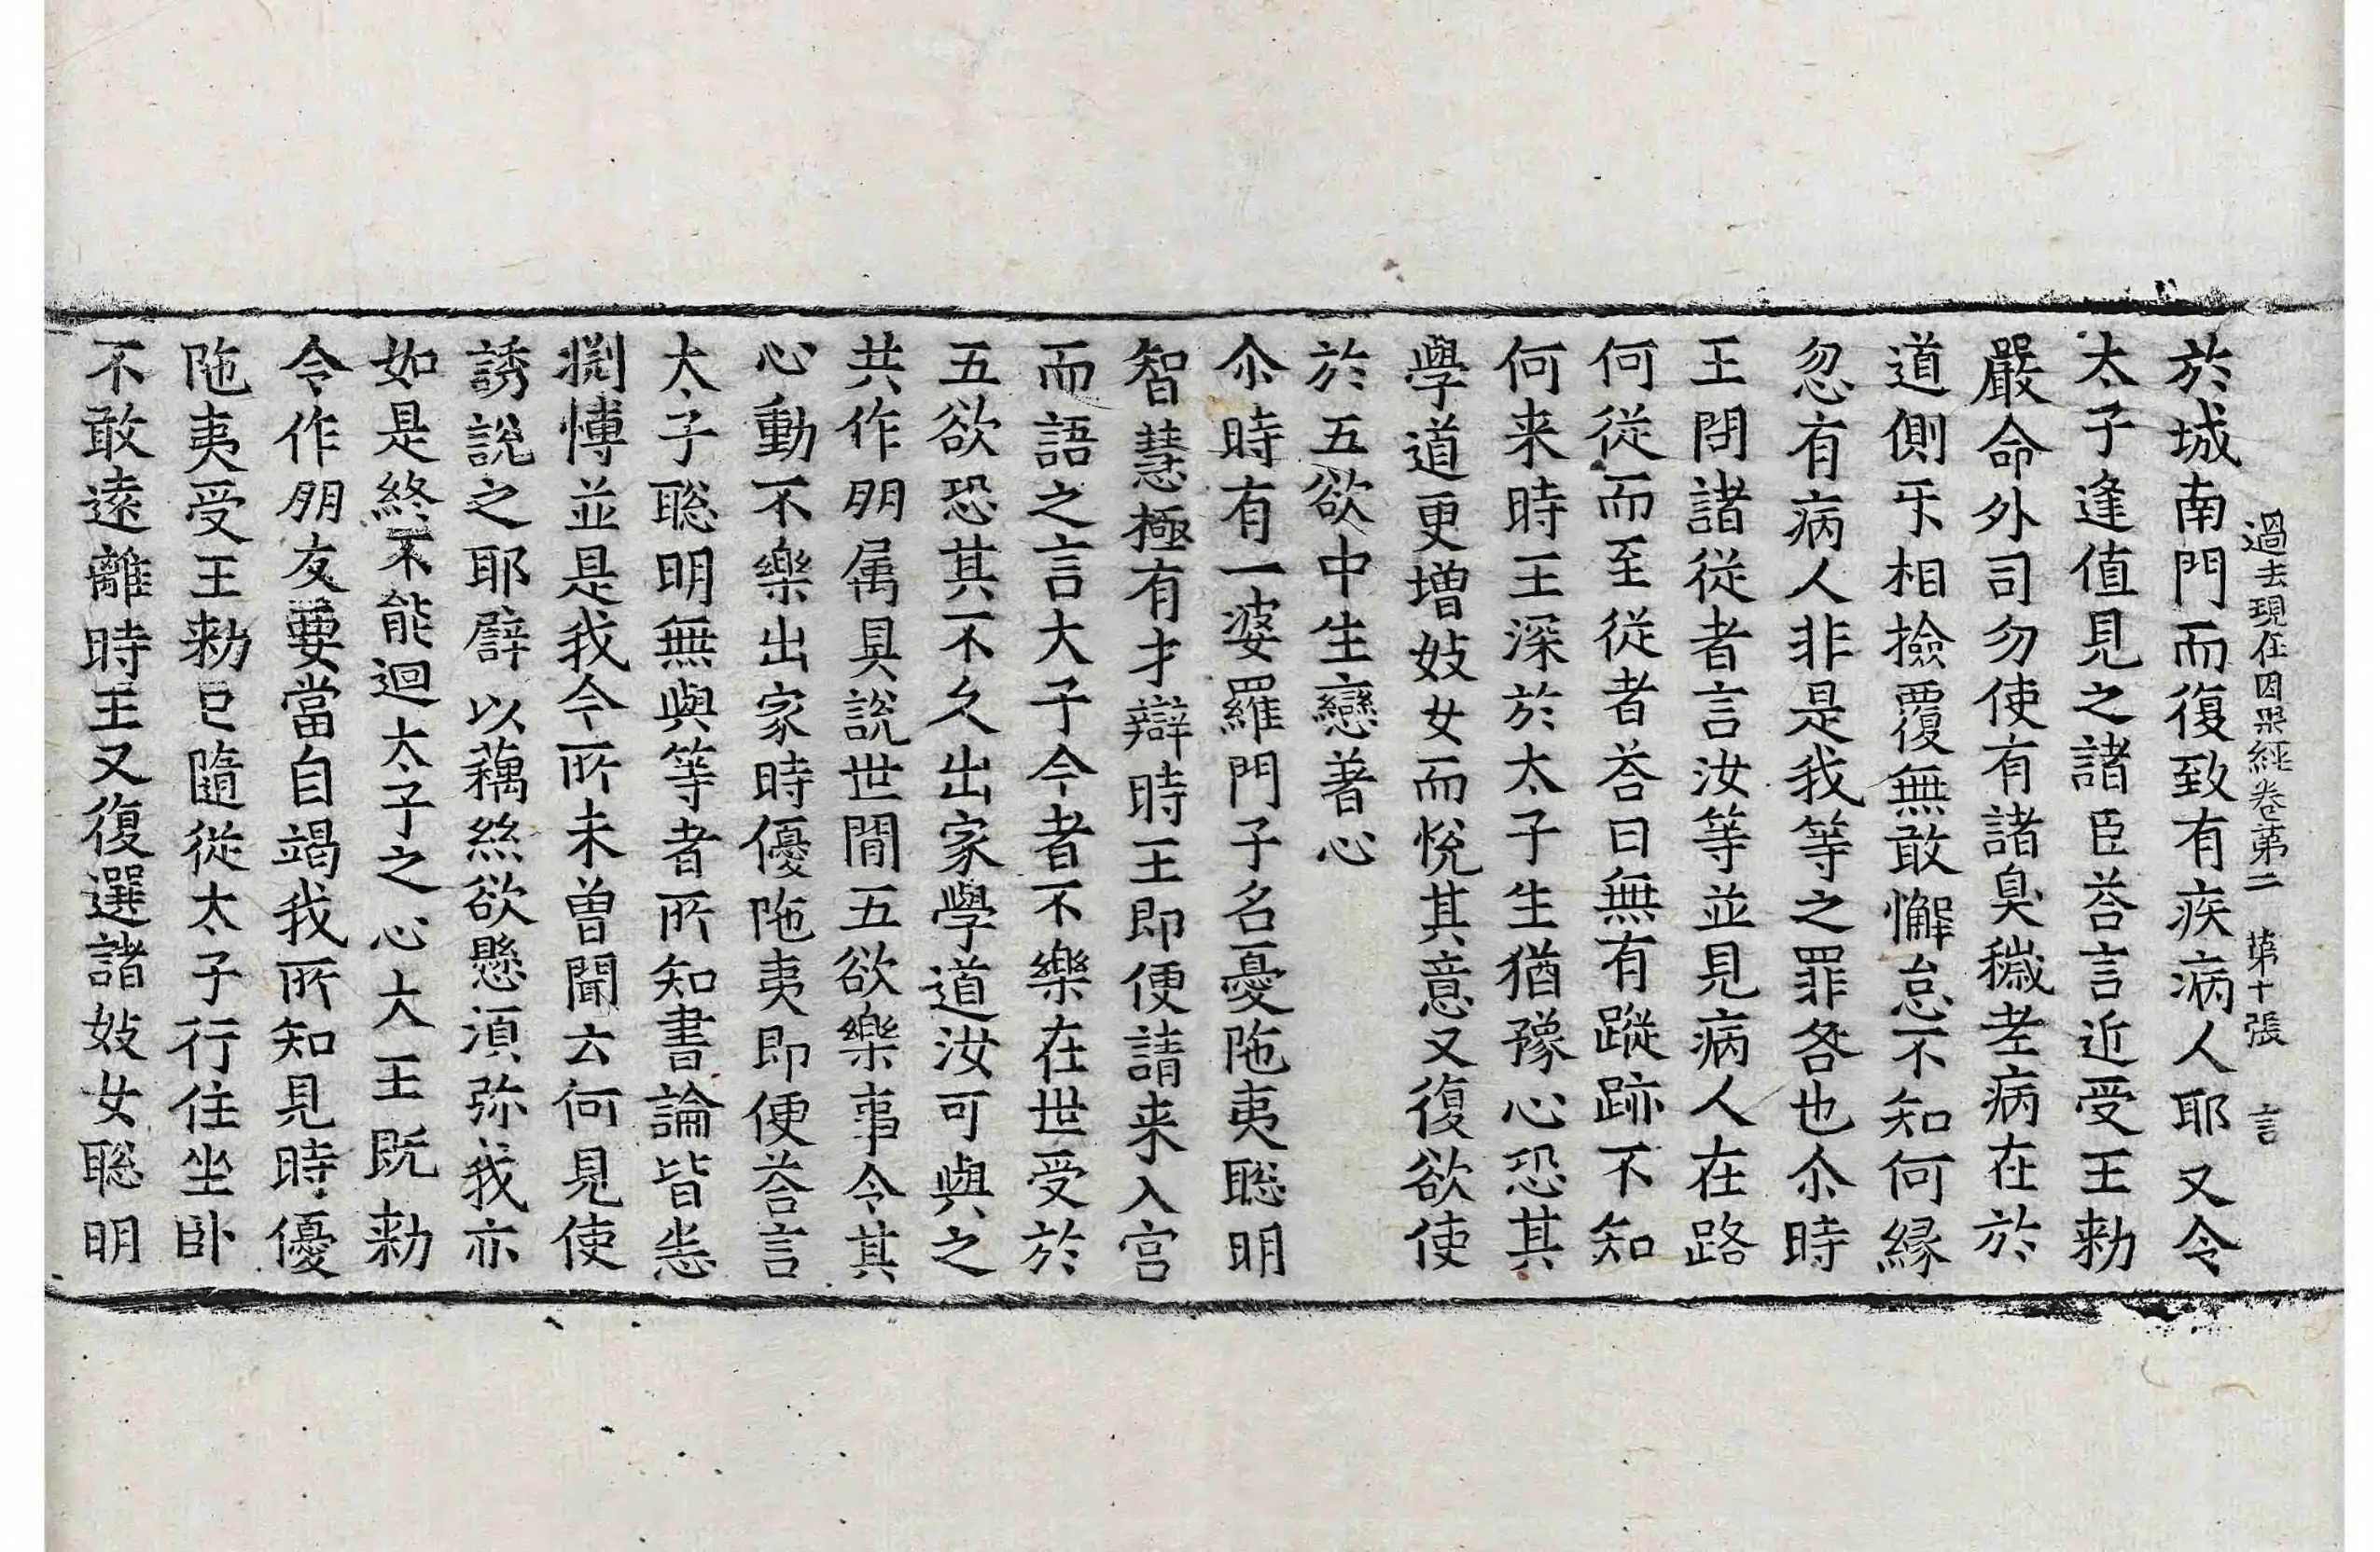 過去現在因果經卷第二　第十張　言
於城南門而復致有疾病人耶又令
太子逢值見之諸臣荅言近受王勑
嚴命外司勿使有諸臭穢老病在於
道側㸦相撿覆無敢懈怠不知何緣
忽有病人非是我等之罪咎也尒時
王問諸從者言汝等並見病人在路
何從而至從者荅曰無有蹤跡不知
何来時王深於太子生猶豫心恐其
學道更增妓女而悅其意又復欲使
於五欲中生戀著心
尒時有一婆羅門子名憂陁夷聡明
智慧極有才辯時王即便請来入宫
而語之言大子今者不樂在世受於
五欲恐其不久出家學道汝可與之
共作朋属具說世間五欲樂事令其
心動不樂出家時優陁夷即便荅言
太子聡明無與等者所知書論皆悉
㴬愽並是我今所未曾聞云何見使
誘說之耶譬以藕絲欲懸湏弥我亦
如是終不能迴太子之心大王既勑
令作朋友要當自竭我所知見時優
陁夷受王勑已隨從太子行住坐卧
不敢遠離時王又復選諸妓女聡明